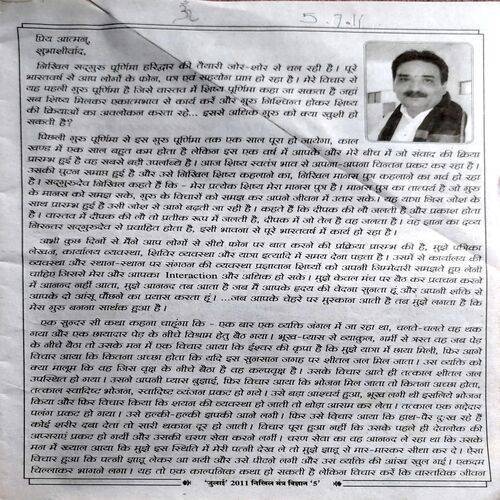 5. July
प्रिय आत्मन्,
शुभाशीर्वाद,
निखिल सद्‌गुरु पूर्णिमा हरिद्वार की तैयारी जोर-शोर से चल रही है। पूरे
भारतवर्ष से आप लोगों के फोन, पत्र एवं सहयोग प्राप्त हो रहा है। मेरे विचार से
यह पहली गुरु पूर्णिमा है जिसे वास्तव में शिष्य पूर्णिमा कहा जा सकता है जहां
सब शिष्य मिलकर एकात्मभाव से कार्य करें और गुरु निश्चिन्त होकर शिष्य
की क्रियाओं का अवलोकन करता रहे... इससे अधिक गुरु को क्या खुशी हो
सकती है?
पिछली गुरु पूर्णिमा से इस गुरु पूर्णिमा तक एक साल पूरा हो जायेगा, काल
खण्ड में एक साल बहुत कम होता है लेकिन इस एक वर्ष में आपके और मेरे बीच में जो संवाद की क्रिया
प्रारम्भ हुई है वह सबसे बड़ी उपलब्धि है। आज शिष्य स्वतंत्र भाव से अपना-अपना चिन्तन प्रकट कर रहा है।
उसकी घुटन समाप्त हुई है और उसे निखिल शिष्य कहलाने का, निखिल मानस पुत्र कहलाने का गर्व हो रहा
है। सद्‌गुरुदेव निखिल कहते हैं कि - मेरा प्रत्येक शिष्य मेरा मानस पुत्र है। मानस पुत्र का तात्पर्य है जो गुरु
के मानस को समझ सके, गुरु के विचारों को समझ कर अपने जीवन में उतार सके। यह यात्रा जिस जोश के
साथ प्रारम्भ हुई है उसी जोश से आगे बढ़ती जा रही है। कहते हैं कि दीपक की लौ जलती है और प्रकाश होता
है। वास्तव में दीपक की लौ तो प्रतीक रूप में जलती है, दीपक में जो तेल है वह जलता है। वह ज्ञान का द्रव्य
निरन्तर सद्‌गुरुदेव से प्रवाहित होता है, इसी भावना से पूरे भारतवर्ष में कार्य हो रहा है।
अभी कुछ दिनों से मैंने आप लोगों से सीधे फोन पर बात करने की प्रक्रिया प्रारम्भ की है, मुझे पत्रिका
लेखन, कार्यालय व्यवस्था, शिविर व्यवस्था और यात्रा इत्यादि में समय देना पड़ता है। उसमें से कार्यालय की
व्यवस्था और स्थान-स्थान पर संगठन की व्यवस्था प्रज्ञावान शिष्यों को अपनी जिम्मेदारी समझते हुए लेनी
चाहिए जिससे मेरा और आपका Interaction और अधिक हो सके। मुझे केवल मंच पर बैठ कर प्रवचन करने
में आनन्द नहीं आता, मुझे आनन्द तब आता है जब मैं आपके हृदय की वेदना सुनता हूं और अपनी शक्ति से
आपके दो आंसू पौंछने का प्रयास करता हूं। ...जब आपके चेहरे पर मुस्कान आती है तब मुझे लगता है कि
मेरा गुरु बनना सार्थक हुआ है।
एक सुन्दर सी कथा कहना चाहूंगा कि - एक बार एक व्यक्ति जंगल में जा रहा था, चलते-चलते वह थक
गया और एक छायादार पेड़ के नीचे विश्राम हेतु बैठ गया। भूख-प्यास से व्याकुल, गर्मी से त्रस्त वह जब पेड़
के नीचे बैठा तो उसके मन में एक विचार आया कि ईश्वर की कृपा है कि मुझे यात्रा में छाया मिली, फिर आगे
विचार आया कि कितना अच्छा होता कि यदि इस सुनसान जगह पर शीतल जल मिल जाता। उस व्यक्ति को
क्या मालूम कि वह जिस वृक्ष के नीचे बैठा है वह कल्पवृक्ष है। उसके विचार आते ही तत्काल शीतल जल
उपस्थित हो गया। उसने अपनी प्यास बुझाई, फिर विचार आया कि भोजन मिल जाता तो कितना अच्छा होता,
तत्काल स्वादिष्ट भोजन, स्वादिष्ट व्यंजन प्रकट हो गये। उसे बड़ा आश्चर्य हुआ, भूख लगी थी इसलिये भोजन
किया और फिर विचार किया कि शयन की व्यवस्था हो जाती तो थोड़ा आराम कर लेता। तत्काल एक गद्देदार
पलंग प्रकट हो गया। उसे हल्की-हल्की झपकी आने लगी। फिर उसे विचार आया कि हाथ-पैर दुःख रहे हैं
कोई शरीर दबा देता तो सारी थकान दूर हो जाती। विचार पूरा हुआ नहीं कि उसके पहले ही देवलोक की
अप्सराएं प्रकट हो गयीं और उसकी चरण सेवा करने लगीं। चरण सेवा का वह आनन्द ले रहा था कि उसके
मन में ख्याल आया कि मुझे इस स्थिति में मेरी पत्नी देख ले तो मुझे झाड़ू से मार-मारकर सीधा कर दे। ऐसा
विचार हुआ कि पत्नी झाड़ू लेकर आ गयी और उसे पीटने लगी और उस व्यक्ति की आंख खुल गई। एकदम
चिल्लाकर भागने लगा। यह तो एक काल्पनिक कथा हो सकती है लेकिन विचार करें कि वास्तविक जीवन
'जुलाई' 2011 निखिल मंत्र विज्ञान '5'